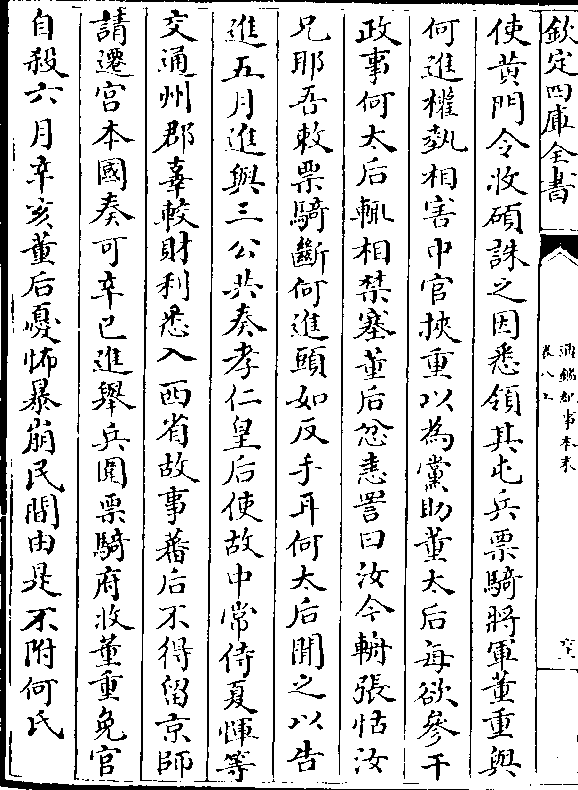 欽定四庫全書
通鑑紀事本末
卷八上
使黃門令收碩誅之因悉領其屯兵票騎將軍董重與
何進權勢相害中官挾重以為黨助董太后每欲參干
政事何太后輒相禁塞董后忿恚詈曰汝今輈張怙汝
兄耶吾敕票騎斷何進頭如反手耳何太后聞之以告
進五月進與三公共奏孝仁皇后使故中常侍夏惲等
交通州郡辜較財利悉入西省故事蕃后不得留京師
請遷宮本國奏可辛巳進舉兵圍票騎府收董重免官
自殺六月辛亥董后憂怖暴崩民間由是不附何氏